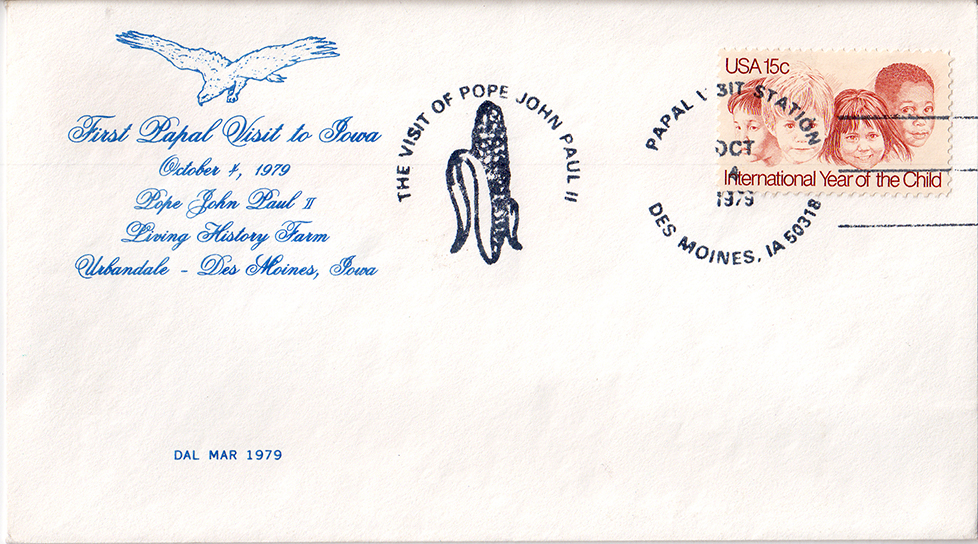 First Papal Visit to Iowa
October 4, 1979
Pope John Paul II
Living History Farm
Urbandale - Des Moines, Iowa
THE VISIT OF POPE JOHN PAUL II
PAPAL VISIT STATION
OCT
4
1979
DES MOINES, IA 50318
USA 15c
International Year of the Child
DAL MAR 1979